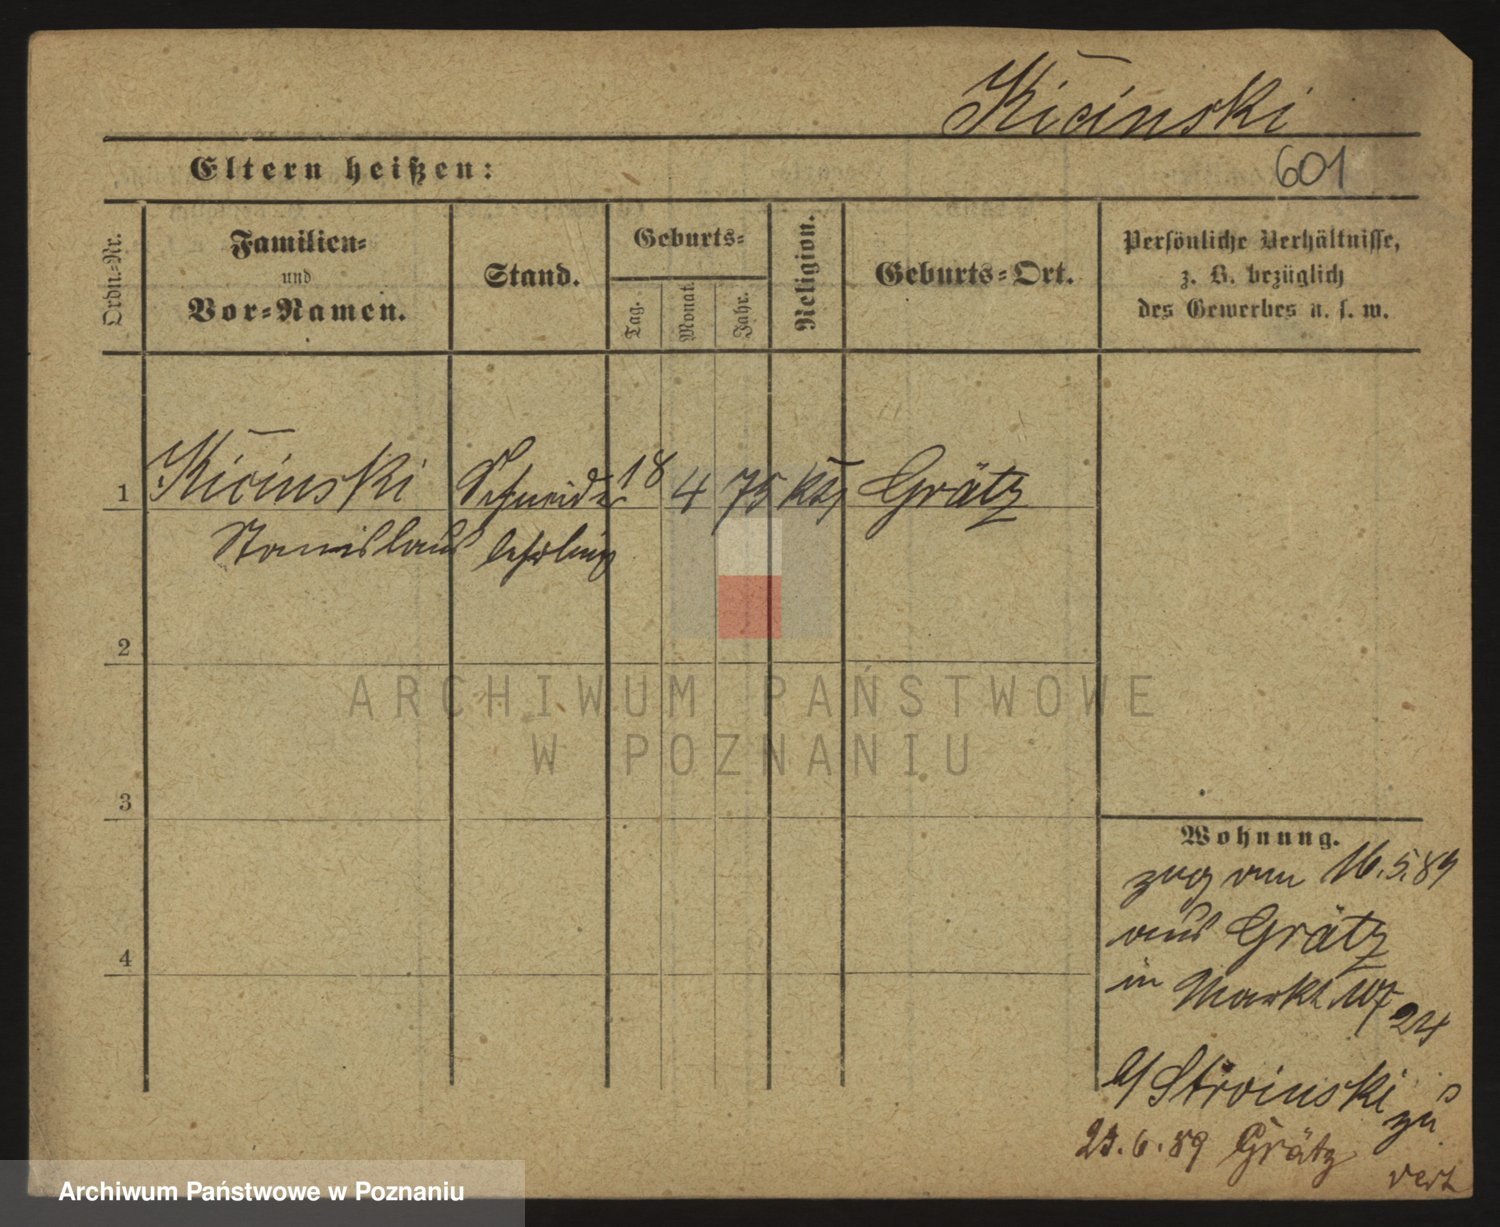 Kicinski
Eltern heißen:
601
Ordn.-Nr.
Familien-
und
Vor-Namen.
Stand.
Geburts-
Tag.
Monat.
Jahr.
Religion.
Geburts-Ort.
Persönliche Verhältnisse,
z. B. bezüglich
des Gewerbes u. s. w.
1 Kicinski Schneider 18 4 75 kth Grätz
Stanislaus lehrling
2
3
4
ARCHIWUM PAŃSTWOWE
W POZNANIU
Wohnung.
zug am 16.5.89
aus Grätz
in Markt
24
b/ Stroinski
zu
23.6.89 Grätz
verz
Archiwum Państwowe w Poznaniu